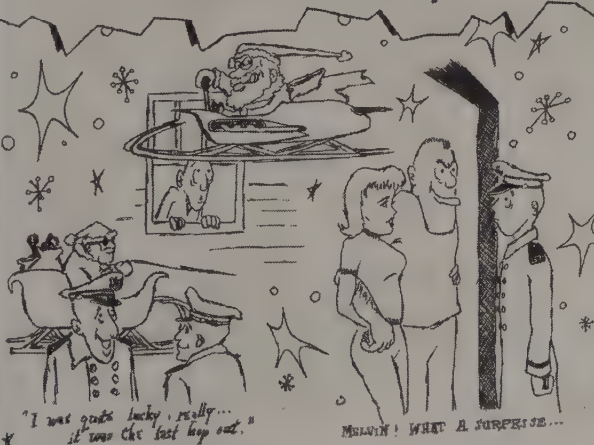 "I was quite lucky, really...
it was the last hop out."
MELVIN! WHAT A SURPRISE...